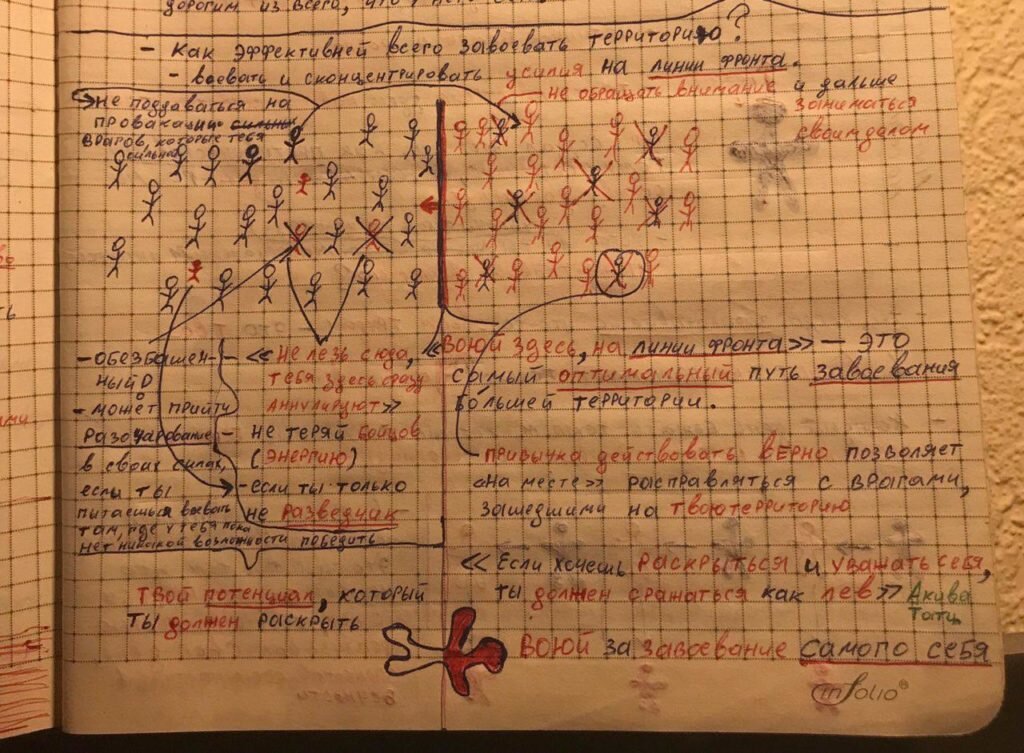 дорогим из всего, что
- Как эффективней всего завоевать территорию?
- воевать и сконцентрировать усилия на линии фронта.
не поддаваться на
провакации сильных
врагов, которые тебя
сильней
не обращать внимание и дальше
заниматься
своим делом
- обезбашен-
ный
- может прийти
разочарование
в своих силах,
если ты
пытаешься воевать
там, где у тебя пока
нет никакой возможности победить
- «Не лезь сюда,
тебя здесь сразу
аннулируют»
- не теряй бойцов
(энергию)
- если ты только
не разведчик
«Воюй здесь, на линии фронта» — это
самый оптимальный путь завоевания
большей территории.
привычка действовать верно позволяет
«на месте» расправляться с врагами,
зашедшими на твою территорию
«Если хочешь раскрыться и уважать себя,
ты должен сражаться как лев» Акива
Татц
твой потенциал, который
ты должен раскрыть
Воюй за завоевание самого себя
infolio®